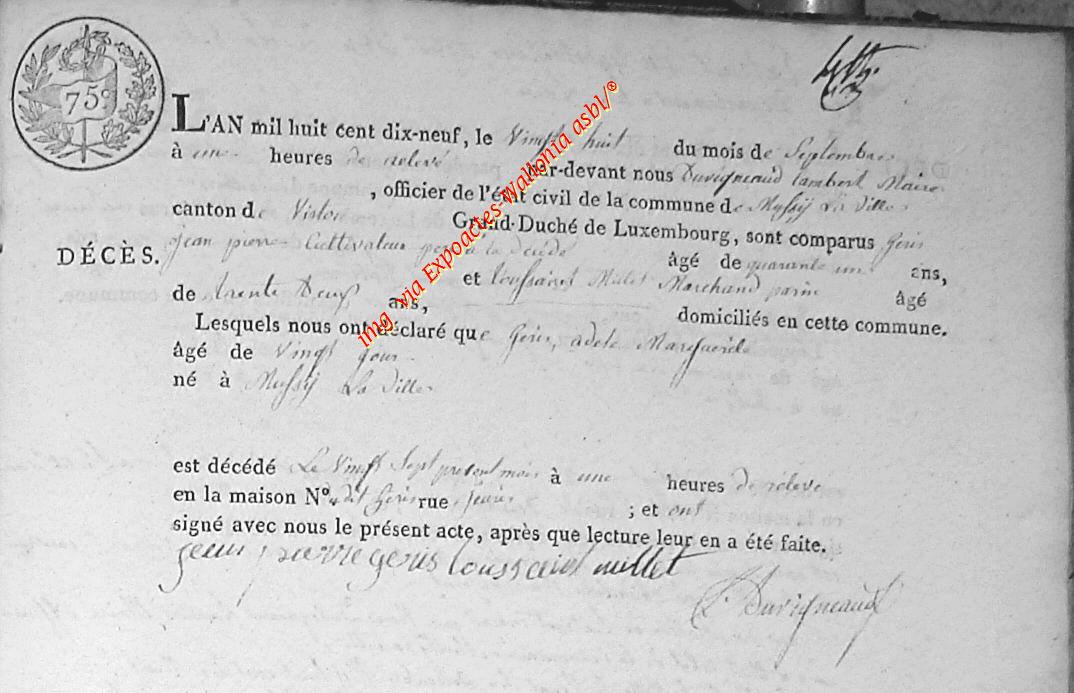 75c
L'AN mil huit cent dix-neuf, le Vingt huit du mois de Septembre
à une heures de relevé par-devant nous Duvigneaud Lambert Maire
, officier de l'état civil de la commune de Mussÿ La Ville
canton de Virton Grand-Duché de Luxembourg, sont comparus Geris
DÉCÈS.
Jean pierre Cultivateur per à la décédé âgé de quarante un ans,
et toussaint Millet Marchand parin âgé
de trente Deux ans,
domiciliés en cette commune.
Lesquels nous ont déclaré que Geris, adele Marguerite
âgé de Vingt jour
né à Mussÿ La Ville
est décédé Le Vingt Sept present mois à une heures de relevé
en la maison N° 4 dit Geris rue ; et ont
signé avec nous le présent acte, après que lecture leur en a été faite.
jean pierre geris toussaint millet
L. Duvigneaud
img via Expoactes-Wallonia asbl/®